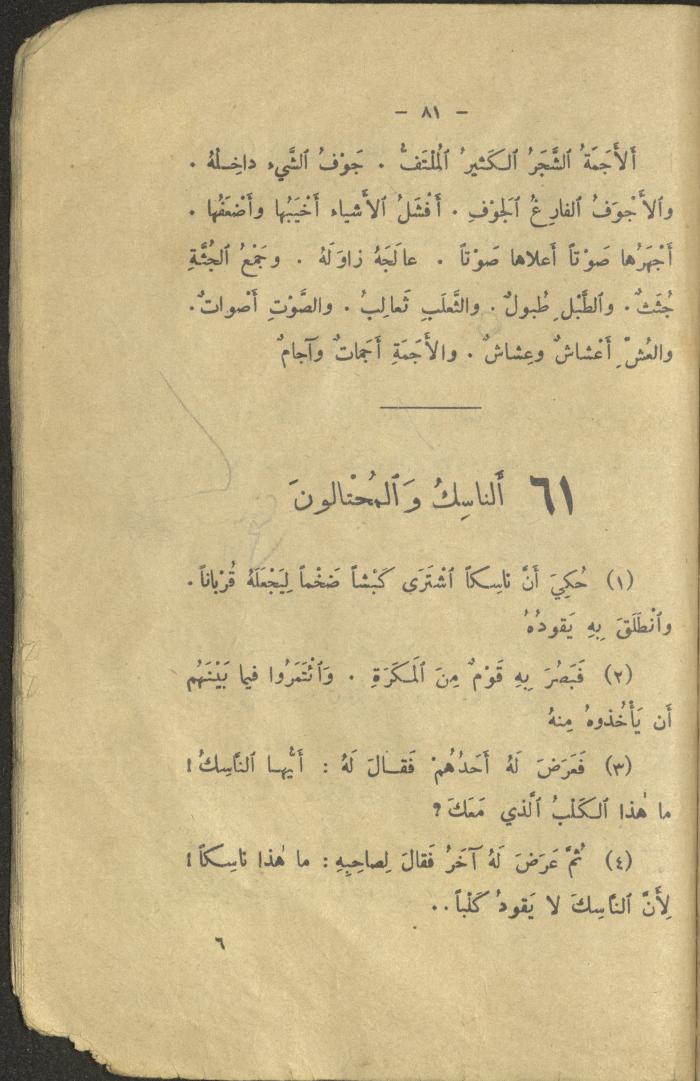 - ٨١ -
أَلأَجَمَةُ ٱلشَّجَرُ ٱلكَثيرُ ٱلمُلْتَفُّ . جَوْفُ ٱلشَّيءِ داخِلُهُ .
وٱلأَجْوَفُ ٱلفارِغُ ٱلجَوْفِ . أَفْشَلُ ٱلأَشياء أَخْيَبُها وأَضْعَفُها .
أَجْهَرُها صَوْتاً أَعلاها صَوْتاً . عالَجَهُ زاوَلَهُ . وجَمْعُ ٱلجُثَّةِ
جُثَثٌ . وٱلطَّبْلِ طُبولٌ . والثَّعلَبِ ثَعالِبُ . والصَّوْتِ أَصواتٌ .
والعُشِّ أَعْشاشٌ وعِشاشٌ . والأَجَمَةِ أَجَماتٌ وآجامٌ
٦١ أَلناسِكُ وَٱلمُحْتالونَ
(١) حُكِيَ أَنَّ ناسِكاً ٱشْتَرَى كَبْشاً ضَخْماً لِيَجْعَلَهُ قُرْباناً .
وٱنْطَلَقَ بِهِ يَقودُهُ
(٢) فَبَصُرَ بِهِ قَوْمٌ مِنَ ٱلمَكَرَةِ . وَٱئْتَمَرُوا فيما بَيْنَهُم
أَن يَأْخُذوهُ مِنهُ
(٣) فَعَرَضَ لَهُ أَحَدُهُمْ فَقالَ لَهُ : أَيُّها ٱلنَّاسِكُ !
ما هٰذا ٱلكَلْبُ ٱلَّذي مَعَكَ ؟
(٤) ثُمَّ عَرَضَ لَهُ آخَرُ فَقالَ لِصاحِبِهِ : ما هٰذا ناسِكاً !
لِأَنَّ ٱلنَّاسِكَ لا يَقودُ كَلْباً ..
٦